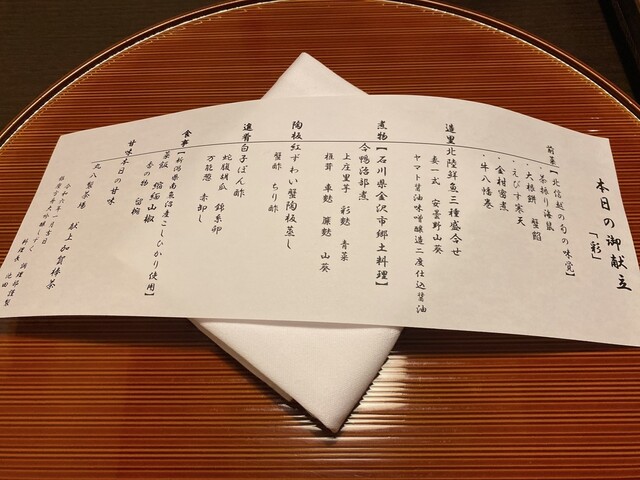 本日の御献立
「彩」
前菜【北信越の旬の味覚】
・茶振り海鼠
・大根餅 蟹餡
・えびす寒天
・金柑蜜煮
・牛八幡巻
造里 北陸鮮魚三種盛合せ
妻一式 安曇野山葵
ヤマト醤油味噌醸造三度仕込醤油
煮物【石川県金沢市郷土料理】
合鴨治部煮
上庄里芋 彩麩 青菜
椎茸 車麩 簾麩 山葵
陶板 紅ずわい蟹陶板蒸し
蟹酢 ちり酢
進肴 白子ぽん酢
蛇腹胡瓜 錦糸卵
万能葱 赤卸し
食事【新潟県南魚沼産こしひかり使用】
菜飯 縮緬山椒
香の物 留椀
甘味 本日の甘味
丸八製茶場 献上加賀棒茶
令和六年一月吉日
料理長 池田
調理部謹製